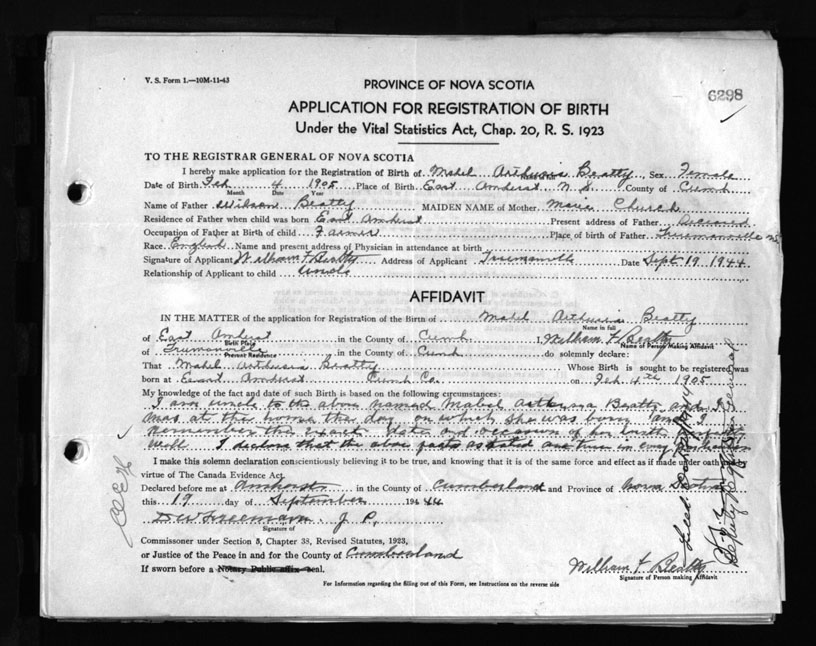 V. S. Form 1.—10M-11-43
PROVINCE OF NOVA SCOTIA
6298
APPLICATION FOR REGISTRATION OF BIRTH
Under the Vital Statistics Act, Chap. 20, R. S. 1923
TO THE REGISTRAR GENERAL OF NOVA SCOTIA
I hereby make application for the Registration of Birth of Mabel Arthusia Beatty Sex Female
Date of Birth Feb 4 1905 Place of Birth East Amherst N. S. County of Cumb
Month Date Year
Name of Father Wilson Beatty MAIDEN NAME of Mother Marie Church
Residence of Father when child was born East Amherst Present address of Father Deceased
Occupation of Father at Birth of child Farmer Place of birth of Father Truemanville NS
Race English Name and present address of Physician in attendance at birth
Signature of Applicant William F Beatty Address of Applicant Truemanville Date Sept 19 1944
Relationship of Applicant to child Uncle
AFFIDAVIT
IN THE MATTER of the application for Registration of the Birth of Mabel Arthusia Beatty
Name in full
of East Amherst in the County of Cumb I, William F. Beatty
Birth Place Name of Person Making Affidavit
of Truemanville in the County of Cumb do solemnly declare:
Present Residence
That Mabel Arthusia Beatty Whose Birth is sought to be registered was
born at East Amherst Cumb Co. on Feb 4th 1905
My knowledge of the fact and date of such Birth is based on the following circumstances:
I am uncle to the above named Mabel Beatty and I
was at the home the day on which she was born and I
remember the exact date and occasion of her birth
well I declare that the above facts as stated are true in every
I make this solemn declaration conscientiously believing it to be true, and knowing that it is of the same force and effect as if made under oath by
virtue of The Canada Evidence Act
Declared before me at Amherst in the County of Cumberland and Province of Nova Scotia
this 19 day of September 1944
D W Freeman J P,
Signature of
Commissoner under Section 5, Chapter 38, Revised Statutes, 1923,
or Justice of the Peace in and for the County of Cumberland
If sworn before a Notary Public affix seal.
William F Beatty
Signature of Person making Affidavit
For Information regarding the filling out of this Form, see Instructions on the reverse side
Deputy Registrar General